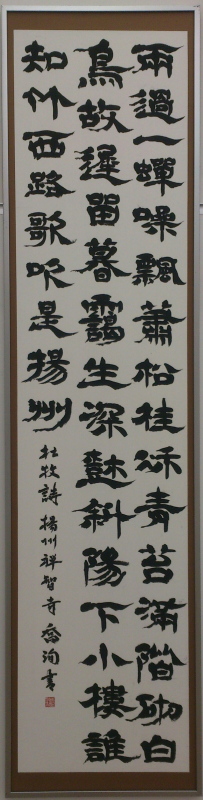 雨過一蟬噪飄蕭松桂秌青苔滿階砌白
鳥故遲留暮靄生深樹斜陽下小樓誰
知竹西路歌吹是揚州
杜牧詩 揚州禅智寺 洵書